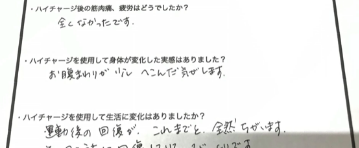 ・ハイチャージ後の筋肉痛、疲労はどうでしたか?
全くなかったです.
・ハイチャージを使用して身体が変化した実感はありましたか?
お腹まわりが少しへこんだ気がします.
・ハイチャージを使用して生活に変化はありましたか?
運動後の回復が、これまでと、全然ちがいます.